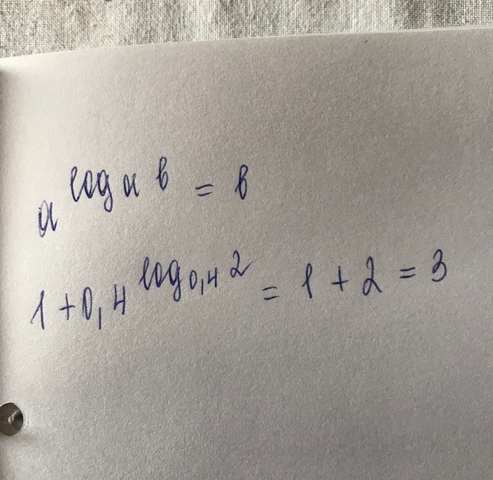 a^log_a b = b
1+0,4^log_0,4 2 = 1+2=3